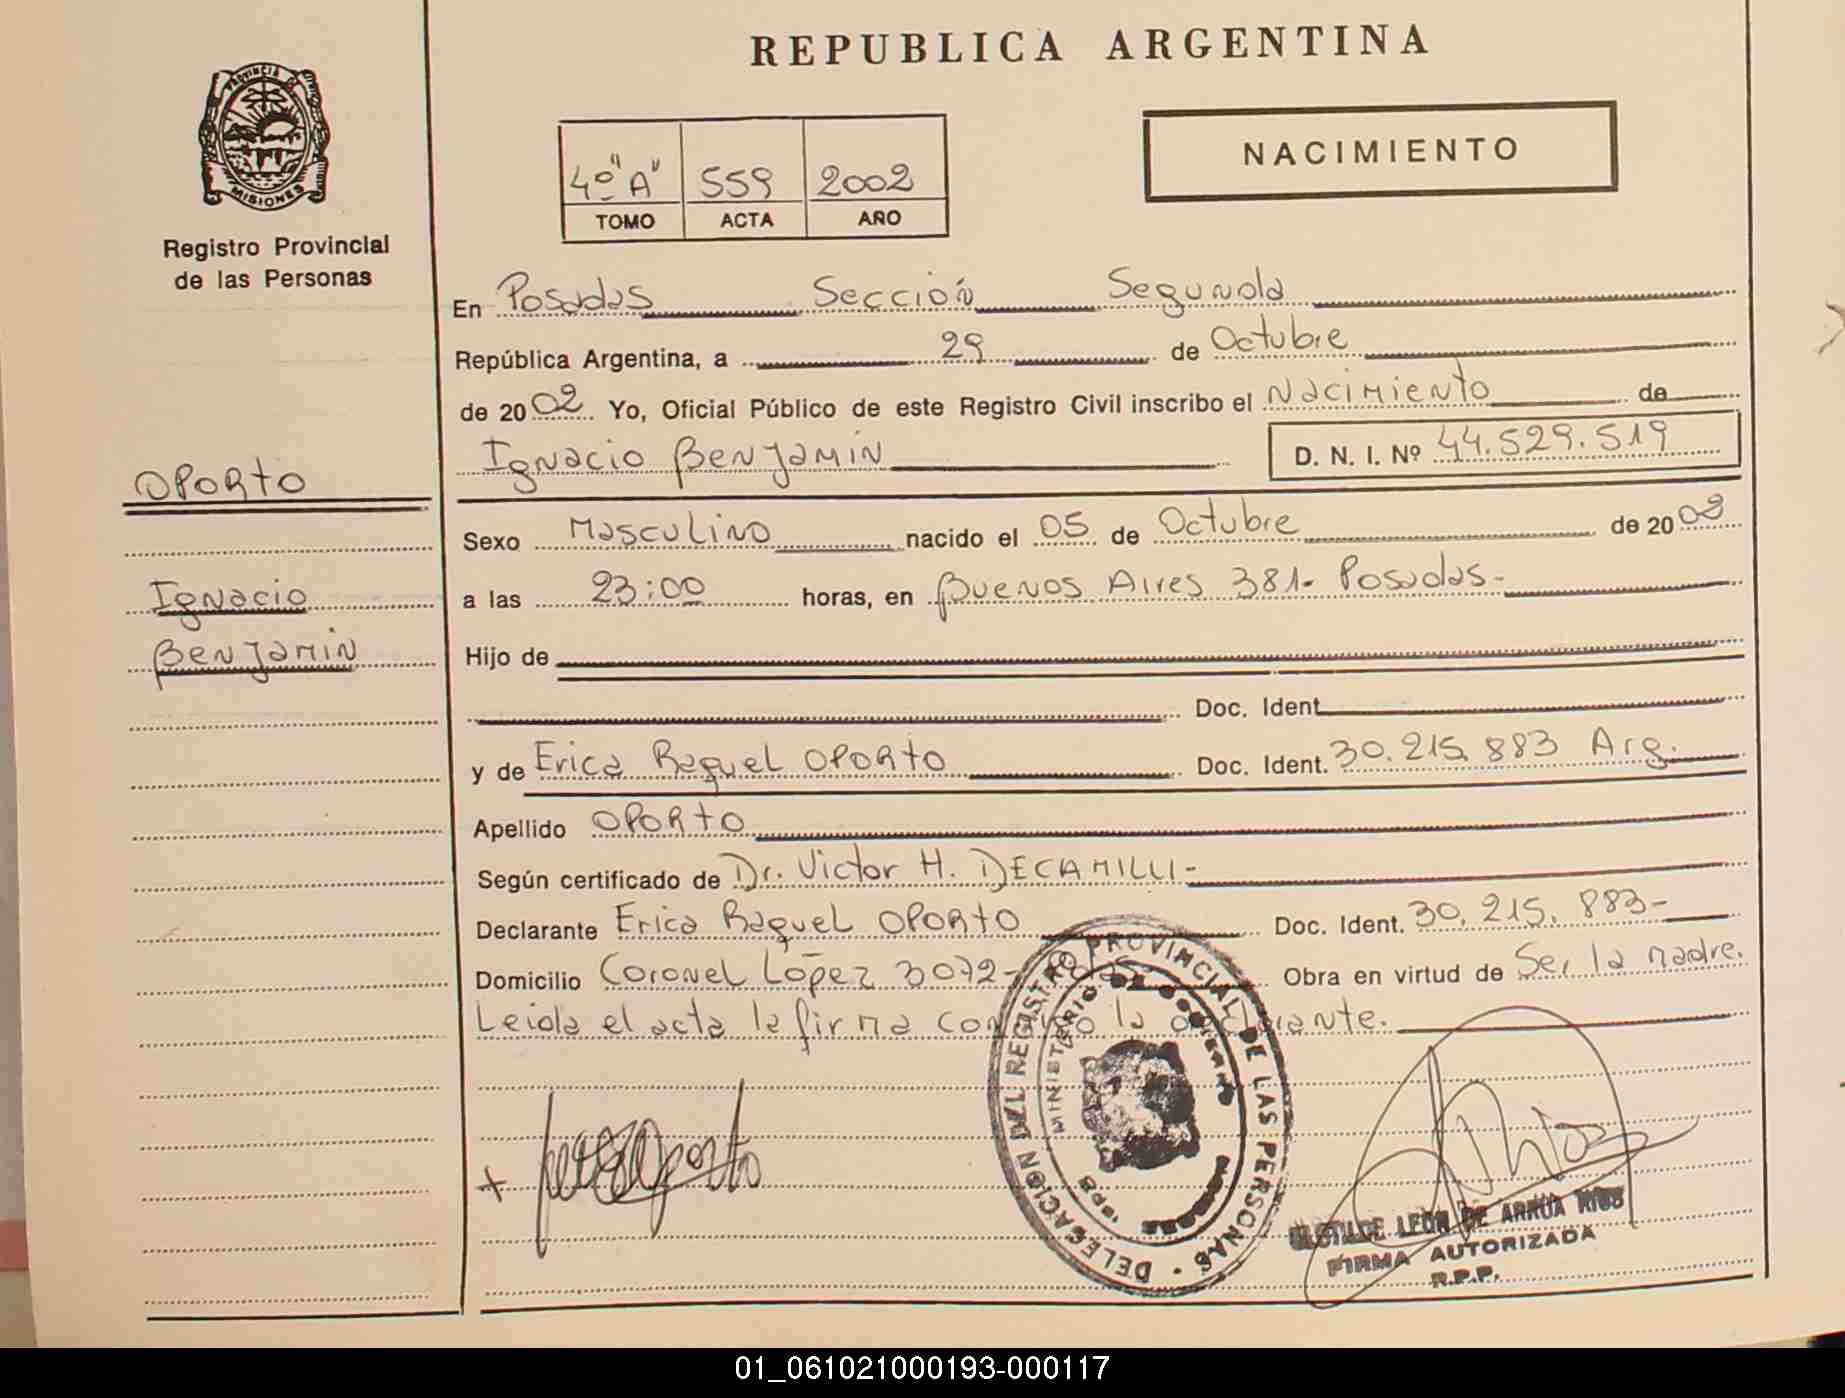 REPUBLICA ARGENTINA
PROVINCIA DE
MISIONES
Registro Provincial
de las Personas
4º "A" 559 2002
TOMO ACTA AÑO
NACIMIENTO
En Posadas Sección Segunda
República Argentina, a 29 de Octubre
de 2002 Yo, Oficial Público de este Registro Civil inscribo el Nacimiento de
Ignacio Benjamin D. N. I. Nº 44.529.519
OPORTO
Sexo Masculino nacido el 05 de Octubre de 2002
Ignacio
a las 23:00 horas, en Buenos Aires 381- Posadas-
Benjamin
Hijo de
Doc. Ident.
y de Erica Raquel OPORTO Doc. Ident. 30.215.883 Arg.
Apellido OPORTO
Según certificado de Dr. Victor H. DECAMILLI-
Declarante Erica Raquel OPORTO Doc. Ident. 30.215.883-
Domicilio Coronel López 3072- Obra en virtud de Ser la madre.
Leida el acta la firma conmigo la declarante.
DELEGACION DEL REGISTRO PROVINCIAL DE LAS PERSONAS
MINISTERIO DE GOBIERNO
MISIONES
Oporto
LEON DE ARRUA RIOS
FIRMA AUTORIZADA
R.P.P.
01_061021000193-000117